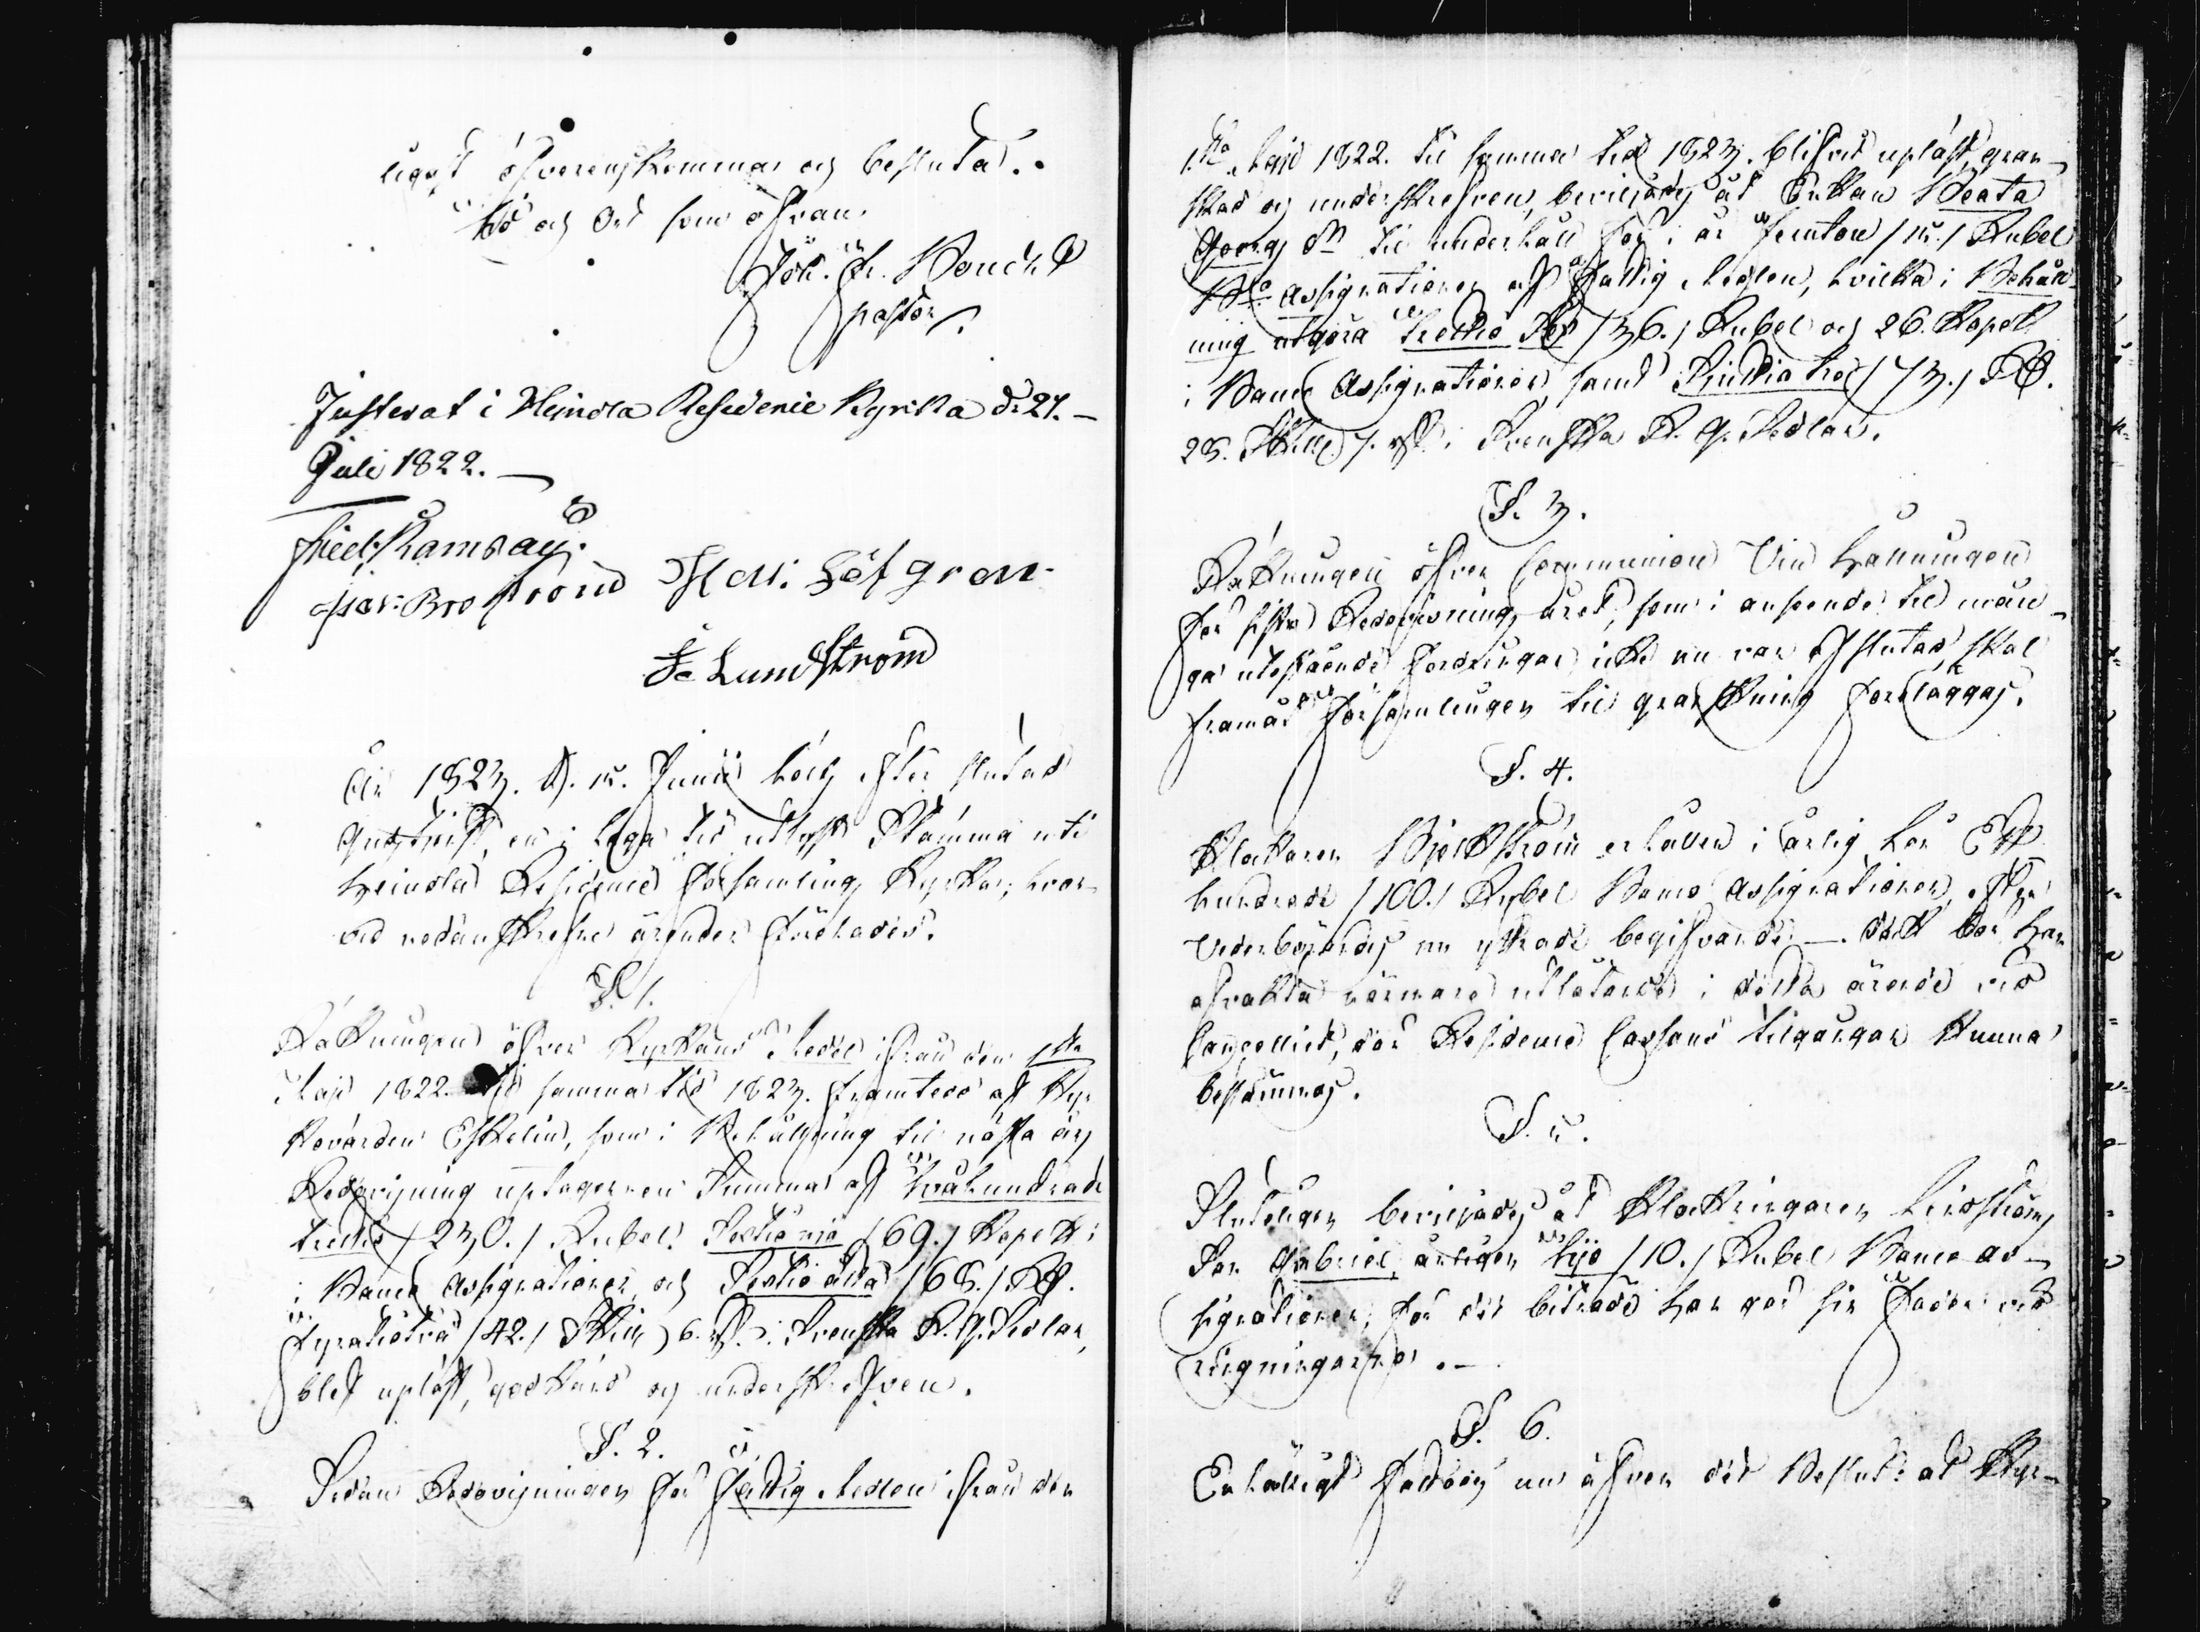 ligast öfverenskommas och beslutas.
Tid och Ort som ofvan.
Joh. Fr. Bonsd
Pastor.
Justerat i Heinola Residence Kyrka d. 21.
Juli 1822.
Fried: Ramsay.
Broström Hen: Löfgren
Lundström
År 1823. d. 15. Junii hölts efter slutad
Gudstjenst, en i laga tid utlyst Stämma uti
Heinola Residence Församlings Kyrka, hvar-
vid nedanskrefne ärender förehades.
§. 1.
Räkningen öfver Kyrkans Medel ifrån den 1sta
Maji 1822. till samma tid 1823. framtedd af Kyr-
kovärden Eskelin, som i Behållning til nästa års
Redovisning uptager en Summa af Tvåhundrade
trettio /230./ Rubel. Sextionio /69./ Kopek:
i Banco Assignationer, och Sextioåtta /68./ Rd.
Fyratiotvå /42./ Skill. 6. r. i Svenska R. G. Sedlar,
blef upläst, godkänd och underskrefven.
§. 2.
Sedan Redovisningen för Fattig Medlen ifrån den
1sta Maji 1822. til samma tid 1823. blifvit upläst, gran-
skad och underskrefven, beviljades åt Enkan Beata
Georgs dr til underhåll för i år Femton /15./ Rubel
Bco Assignationer af Fattig Medlen, hvilka i Behåll-
ning utgöra Trettio Sex /36./ Rubel och 26. Kopek
i Banco Assignationer, samt Sjuttiotre /73./ Rd.
28. Skill. 7. r. i Svenska R. G. Sedlar.
§. 3.
Räkningen öfver Communion Vin Hållningen
för sista Redovisnings året, som i anseende til mån-
ga utestående fordringar icke nu var afslutad, skal
framdeles Församlingen til granskning föreläggas.
§. 4.
Klockaren Björkström erhåller i årlig Lön Ett
hundrade /100./ Rubel Banco Assignationer, efter
Vederbörandes nu yttrade begifvande. dock bör han
afvakta närmare utlåtande i detta ärende vid
Cancelliet, där Residence Cassans tilgångar kunna
bestämmas.
§. 5.
Slutligen beviljades åt Klockringaren Lindströms
Son Gabriel, årligen Tijo /10./ Rubel Banco As-
signationer; för det biträde han gör sin Fader vid
ringningarna.
§. 6.
Enhälligt fattades nu äfven det Beslut: at Kyr-